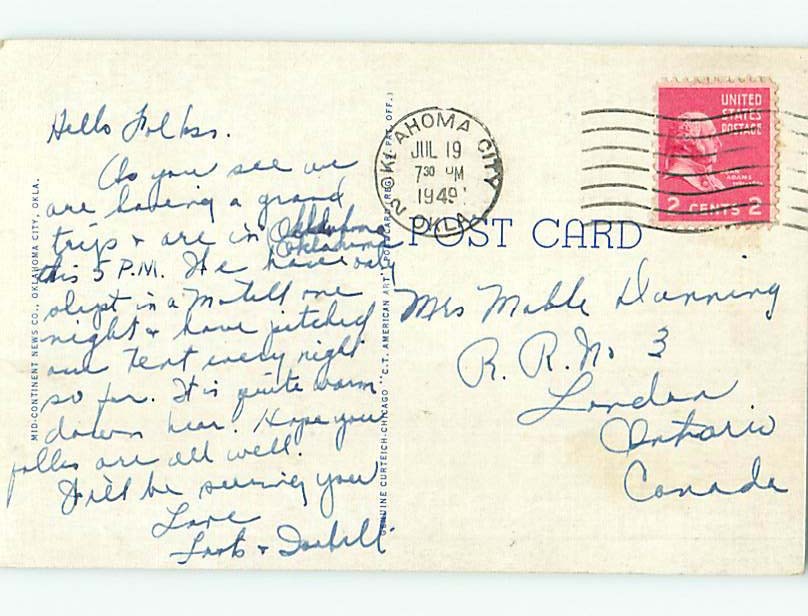 Hello Folkss.
As you see we
are having a grand
trip & are in Oklahoma
Oklahoma
this 5 P.M. We have only
slept in a Motell one
night & have pitched
our tent every night
so far. It is quite warm
down hear. Hope you
folks are all well.
We'll be seeing you
Love
&
MID-CONTINENT NEWS CO., OKLAHOMA CITY, OKLA.
GENUINE CURTEICH-CHICAGO "C.T. AMERICAN ART" POSTCARD (REG. U.S. PAT. OFF.)
OKLAHOMA CITY
JUL 19
7 30 PM
1949
2 OKLA.
UNITED
STATES
POSTAGE
JOHN
ADAMS
2 CENTS 2
POST CARD
Mrs Mable Dunning
R. R. No 3
London
Ontario
Canada